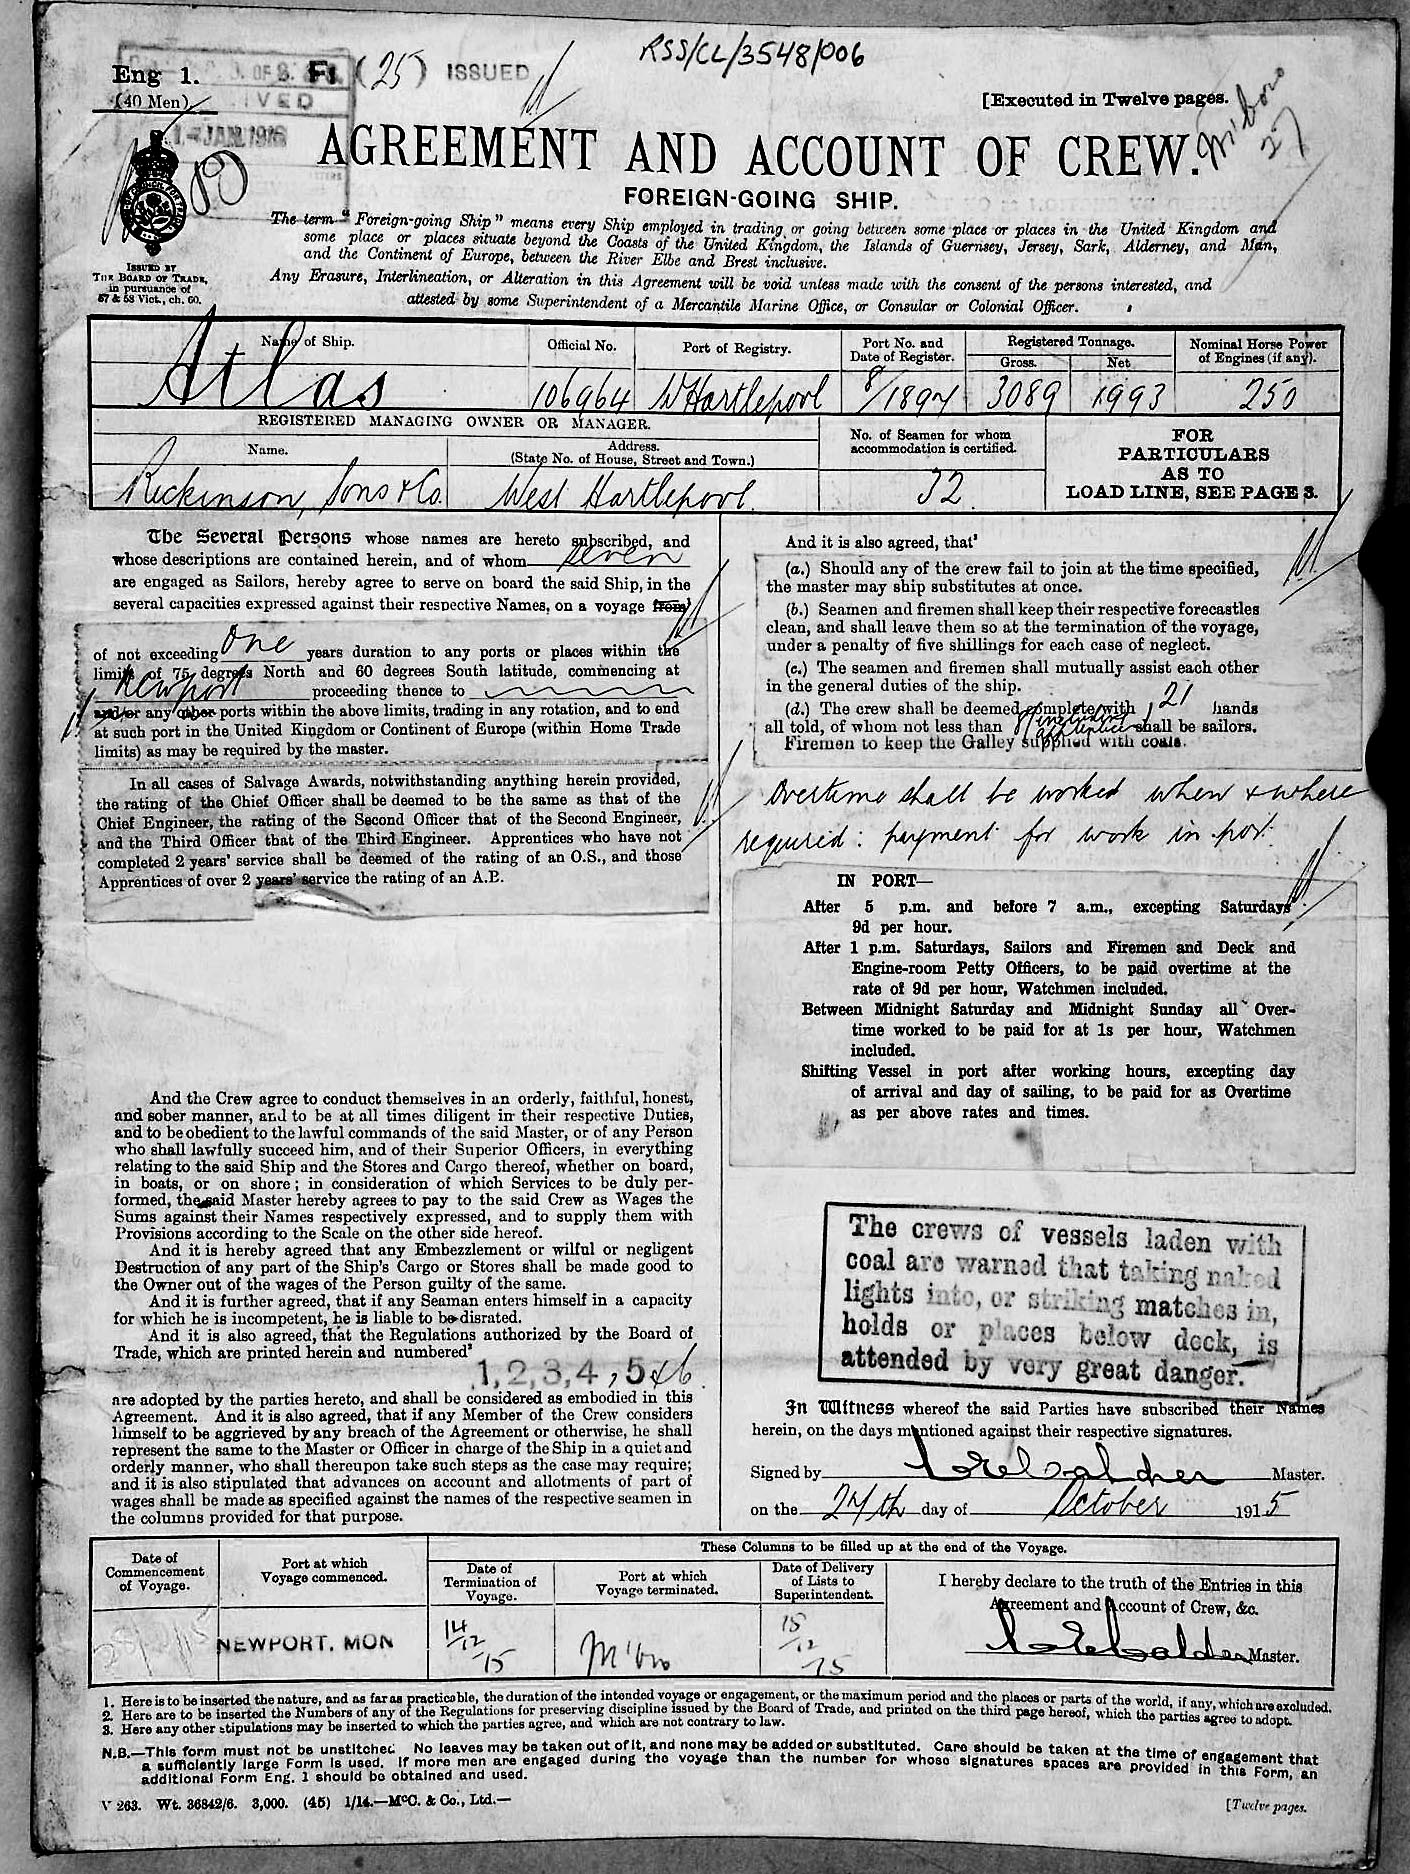 RSS/CL/3548/006
Eng 1.
(40 Men)
F1 (25) ISSUED
[Executed in Twelve pages.
M'boro
27
1-JAN.1916
AGREEMENT AND ACCOUNT OF CREW.
FOREIGN-GOING SHIP.
ISSUED BY
THE BOARD OF TRADE,
in pursuance of
57 & 58 Vict., ch. 60.
The term "Foreign-going Ship" means every Ship employed in trading or going between some place or places in the United Kingdom and
some place or places situate beyond the Coasts of the United Kingdom, the Islands of Guernsey, Jersey, Sark, Alderney, and Man,
and the Continent of Europe, between the River Elbe and Brest inclusive.
Any Erasure, Interlineation, or Alteration in this Agreement will be void unless made with the consent of the persons interested, and
attested by some Superintendent of a Mercantile Marine Office, or Consular or Colonial Officer.
Name of Ship.
Official No.
Port of Registry.
Port No. and
Date of Register.
Registered Tonnage.
Gross.
Net
Nominal Horse Power
of Engines (if any).
Atlas
106964
W Hartlepool
8/1897
3089
1993
250
REGISTERED MANAGING OWNER OR MANAGER.
Name.
Address.
(State No. of House, Street and Town.)
No. of Seamen for whom
accommodation is certified.
FOR
PARTICULARS
AS TO
LOAD LINE, SEE PAGE 3.
Rickinson, Sons & Co.
West Hartlepool.
32
The Several Persons whose names are hereto subscribed, and
whose descriptions are contained herein, and of whom seven
are engaged as Sailors, hereby agree to serve on board the said Ship, in the
several capacities expressed against their respective Names, on a voyage from¹
of not exceeding One years duration to any ports or places within the
limits of 75 degrees North and 60 degrees South latitude, commencing at
Newport proceeding thence to
and/or any other ports within the above limits, trading in any rotation, and to end
at such port in the United Kingdom or Continent of Europe (within Home Trade
limits) as may be required by the master.
In all cases of Salvage Awards, notwithstanding anything herein provided,
the rating of the Chief Officer shall be deemed to be the same as that of the
Chief Engineer, the rating of the Second Officer that of the Second Engineer,
and the Third Officer that of the Third Engineer. Apprentices who have not
completed 2 years' service shall be deemed of the rating of an O.S., and those
Apprentices of over 2 years' service the rating of an A.B.
And the Crew agree to conduct themselves in an orderly, faithful, honest,
and sober manner, and to be at all times diligent in their respective Duties,
and to be obedient to the lawful commands of the said Master, or of any Person
who shall lawfully succeed him, and of their Superior Officers, in everything
relating to the said Ship and the Stores and Cargo thereof, whether on board,
in boats, or on shore; in consideration of which Services to be duly per-
formed, the said Master hereby agrees to pay to the said Crew as Wages the
Sums against their Names respectively expressed, and to supply them with
Provisions according to the Scale on the other side hereof.
And it is hereby agreed that any Embezzlement or wilful or negligent
Destruction of any part of the Ship's Cargo or Stores shall be made good to
the Owner out of the wages of the Person guilty of the same.
And it is further agreed, that if any Seaman enters himself in a capacity
for which he is incompetent, he is liable to be disrated.
And it is also agreed, that the Regulations authorized by the Board of
Trade, which are printed herein and numbered²
1, 2, 3, 4, 5 & 6
are adopted by the parties hereto, and shall be considered as embodied in this
Agreement. And it is also agreed, that if any Member of the Crew considers
himself to be aggrieved by any breach of the Agreement or otherwise, he shall
represent the same to the Master or Officer in charge of the Ship in a quiet and
orderly manner, who shall thereupon take such steps as the case may require;
and it is also stipulated that advances on account and allotments of part of
wages shall be made as specified against the names of the respective seamen in
the columns provided for that purpose.
And it is also agreed, that³
(a.) Should any of the crew fail to join at the time specified,
the master may ship substitutes at once.
(b.) Seamen and firemen shall keep their respective forecastles
clean, and shall leave them so at the termination of the voyage,
under a penalty of five shillings for each case of neglect.
(c.) The seamen and firemen shall mutually assist each other
in the general duties of the ship.
(d.) The crew shall be deemed complete with 21 hands
all told, of whom not less than 8 including apprentices shall be sailors.
Firemen to keep the Galley supplied with coals.
Overtime shall be worked when & where
required: payment for work in port.
IN PORT—
After 5 p.m. and before 7 a.m., excepting Saturdays
9d per hour.
After 1 p.m. Saturdays, Sailors and Firemen and Deck and
Engine-room Petty Officers, to be paid overtime at the
rate of 9d per hour, Watchmen included.
Between Midnight Saturday and Midnight Sunday all Over-
time worked to be paid for at 1s per hour, Watchmen
included.
Shifting Vessel in port after working hours, excepting day
of arrival and day of sailing, to be paid for as Overtime
as per above rates and times.
The crews of vessels laden with
coal are warned that taking naked
lights into, or striking matches in,
holds or places below deck, is
attended by very great danger.
In Witness whereof the said Parties have subscribed their Names
herein, on the days mentioned against their respective signatures.
Signed by Master.
on the 27th day of October 1915
Date of
Commencement
of Voyage.
Port at which
Voyage commenced.
These Columns to be filled up at the end of the Voyage.
Date of
Termination of
Voyage.
Port at which
Voyage terminated.
Date of Delivery
of Lists to
Superintendent.
I hereby declare to the truth of the Entries in this
Agreement and Account of Crew, &c.
NEWPORT. MON
14/12/15
M'bro
15/12/15
Master.
1. Here is to be inserted the nature, and as far as practicable, the duration of the intended voyage or engagement, or the maximum period and the places or parts of the world, if any, which are excluded.
2. Here are to be inserted the Numbers of any of the Regulations for preserving discipline issued by the Board of Trade, and printed on the third page hereof, which the parties agree to adopt.
3. Here any other stipulations may be inserted to which the parties agree, and which are not contrary to law.
N.B.—This form must not be unstitched. No leaves may be taken out of it, and none may be added or substituted. Care should be taken at the time of engagement that
a sufficiently large Form is used. If more men are engaged during the voyage than the number for whose signatures spaces are provided in this Form, an
additional Form Eng. 1 should be obtained and used.
V 263. Wt. 36842/6. 3,000. (45) 1/14.—McC. & Co., Ltd.—
[Twelve pages.